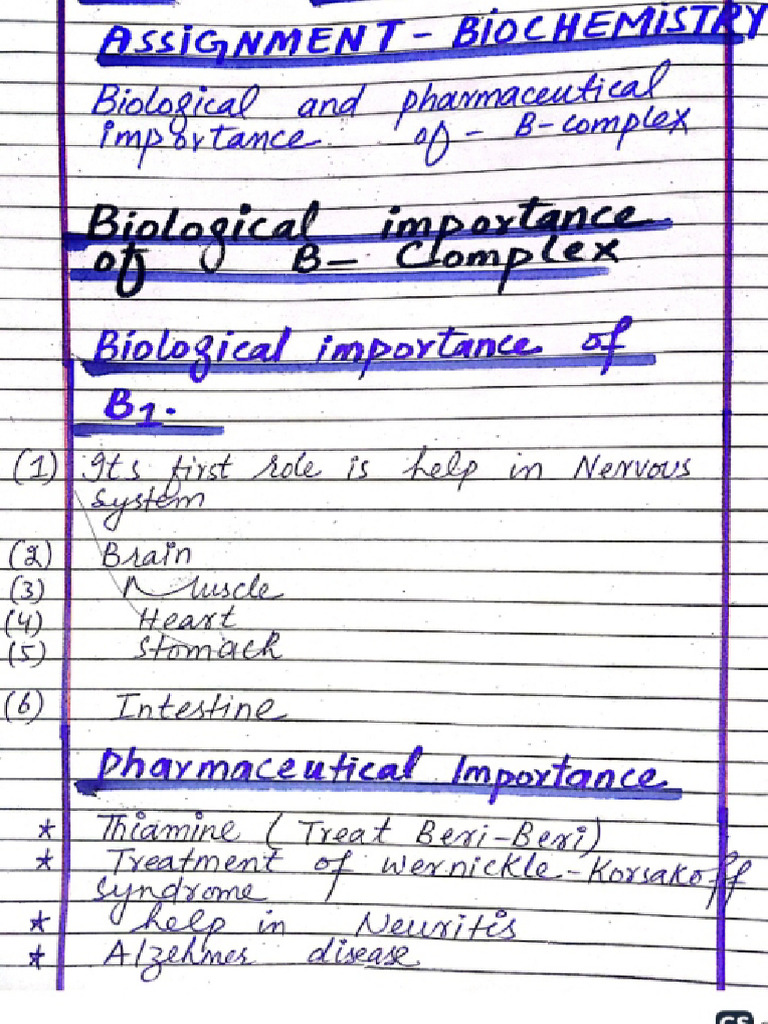 ASSIGNMENT - BIOCHEMISTRY
Biological and pharmaceutical
importance of - B-complex
Biological importance
of B- Complex
Biological importance of
B1.
(1) Its first role is help in Nervous
system
(2) Brain
(3) Muscle
(4) Heart
(5) Stomach
(6) Intestine
Pharmaceutical Importance
* Thiamine ( Treat Beri-Beri)
* Treatment of wernickle-Korsakoff
syndrome
* help in Neuritis
* Alzehmes disease
CS